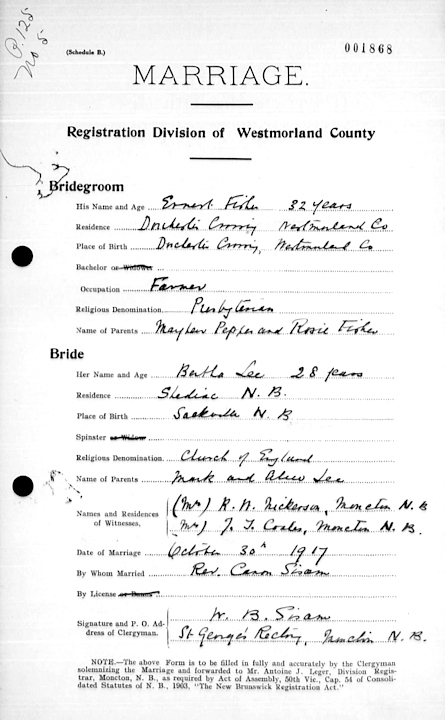 P. 125
No 5
(Schedule B.) 001868
MARRIAGE.
Registration Division of Westmorland County
Bridegroom
His Name and Age Ernest Fisher 32 years
Residence Dorchester Crossing Westmorland Co
Place of Birth Dorchester Crossing, Westmorland Co
Bachelor or Widower
Occupation Farmer
Religious Denomination Presbyterian
Name of Parents Pepper and Rosie Fisher
Bride
Her Name and Age Bertha Lee 28 years
Residence Shediac N. B.
Place of Birth Sackville N. B
Spinster or Widow
Religious Denomination Church of England
Name of Parents Mark and Lee
Names and Residences of Witnesses, (Mrs) R. N. Nickerson, Moncton N. B
Mrs) J. T. Coates, Moncton N. B.
Date of Marriage October 30th 1917
By Whom Married Rev. Canon Sisam
By License or Banns
Signature and P. O. Address of Clergyman. W. B. Sisam
St George's Rectory, Moncton N. B.
NOTE.—The above Form is to be filled in fully and accurately by the Clergyman
solemnizing the Marriage and forwarded to Mr. Antoine J. Leger, Division Regis-
trar, Moncton, N. B., as required by Act of Assembly, 50th Vic., Cap. 54 of Consoli-
dated Statutes of N. B., 1903, "The New Brunswick Registration Act."